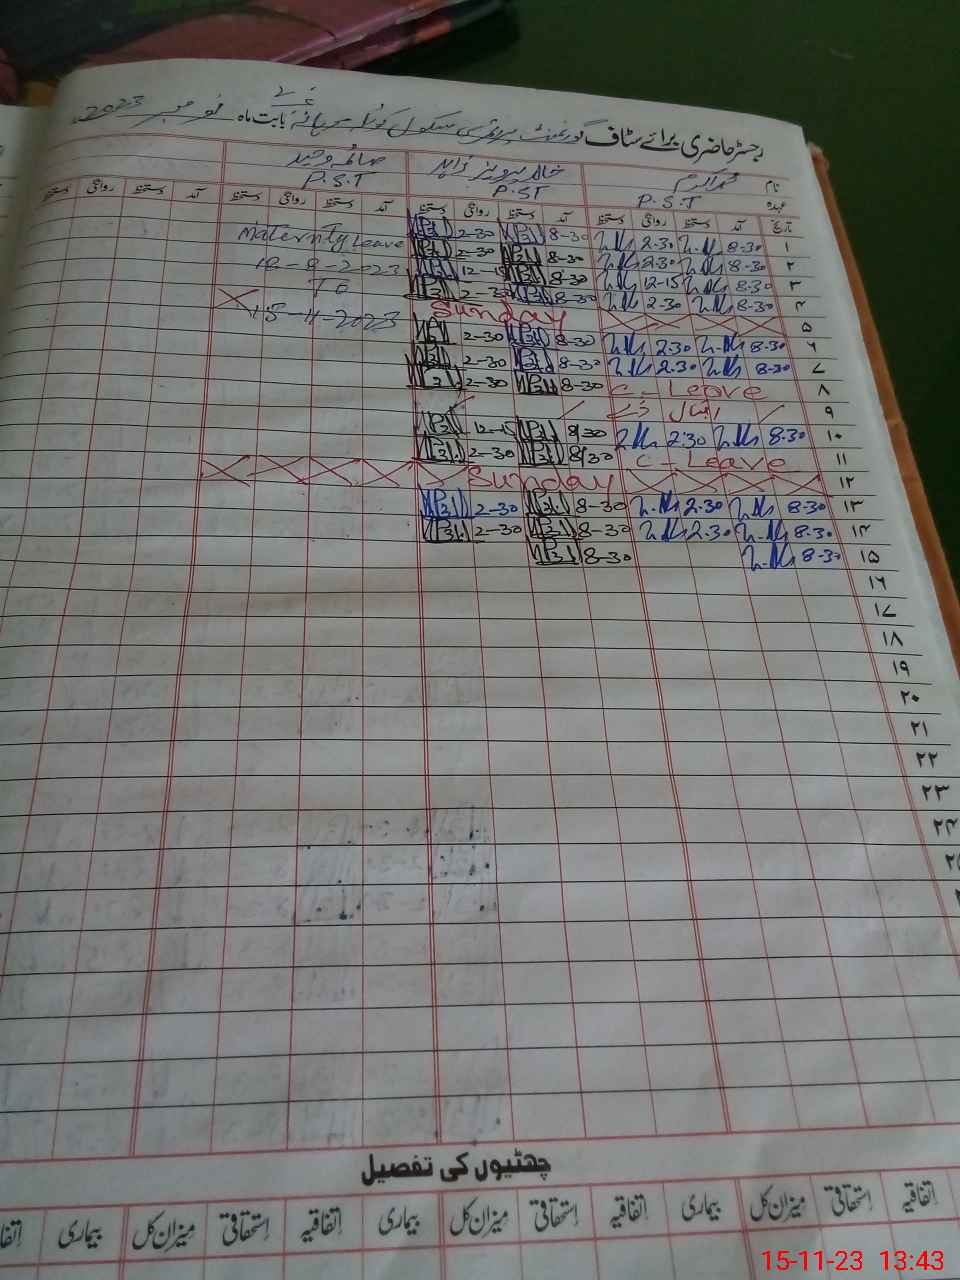 رجسٹر حاضری برائے سٹاف گورنمنٹ پرائمری سکول بابت ماہ نومبر 2023
نام محمد اکرم خالد پرویز زاہد صائمہ وحید
عہدہ P.S.T P.ST P.S.T
تاریخ آمد دستخط روانگی دستخط آمد دستخط روانگی دستخط آمد دستخط روانگی دستخط آمد دستخط روانگی دستخط
۱ 8-30 2.30 8-30 2-30 Maternity Leave
۲ 8-30 2.30 8-30 2-30 18-8-2023
۳ 8.30 12-15 8-30 12-15 To
۴ 8-30 2.30 8-30 2-30 15-11-2023
۵ Sunday
۶ 8-30 2.30 8-30 2-30
۷ 8-30 2.30 8-30 2-30
۸ C-Leave 8-30 2-30
۹
۱۰ 8.30 2.30 8/30 12-15
۱۱ C-Leave 8/30 2-30
۱۲ Sunday
۱۳ 8-30 2.30 8-30 2-30
۱۴ 8-30 2.30 8-30 2-30
۱۵ 8-30 8-30
۱۶
۱۷
۱۸
۱۹
۲۰
۲۱
۲۲
۲۳
۲۴
چھٹیوں کی تفصیل
اتفاقیہ استحقاقی میزان کل بیماری اتفاقیہ استحقاقی میزان کل بیماری اتفاقیہ استحقاقی میزان کل بیماری
15-11-23 13:43